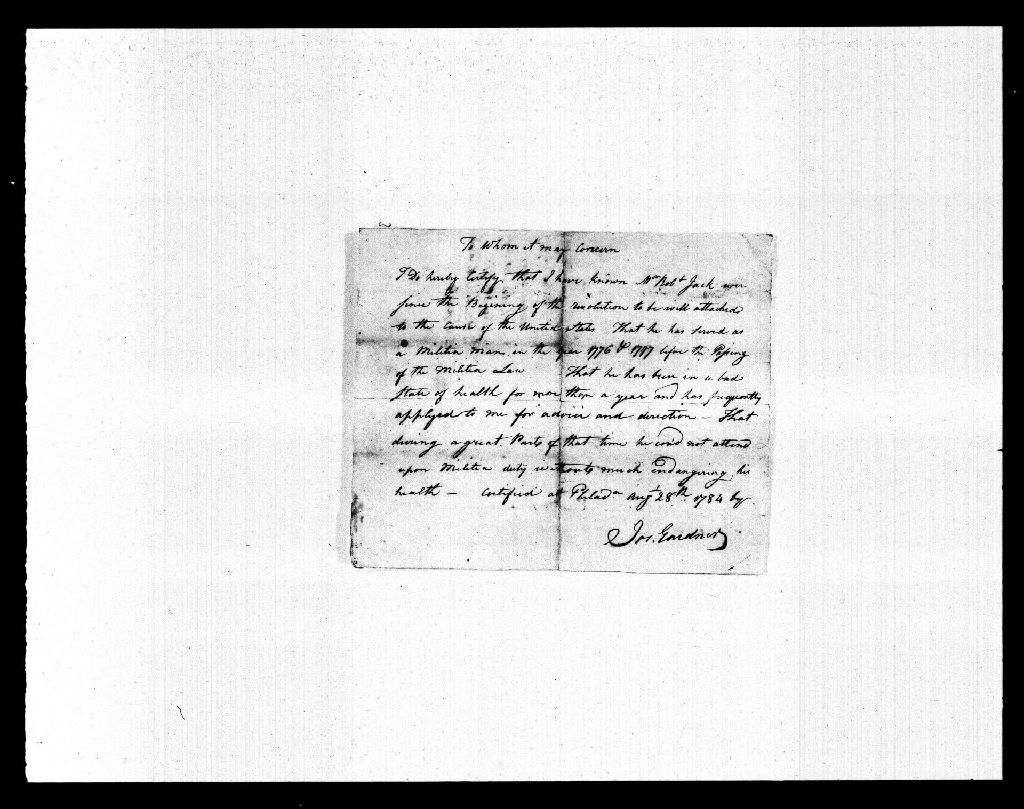 To Whom it may Concern
I Do hereby Certify that I have known Mr Robt Jack ever
since the Begining of the revolution to be well attached
to the Cause of the United States That he has served as
a Militia man in the year 1776 & 1777 before the Passing
of the Militia Law That he has been in a bad
State of health for more than a year and has frequently
applyed to me for advice and direction — That
during a great Part of that time he could not attend
upon Militia duty without much endangering his
health — Certified at Philada Augt 28th 1784 by
Jos. Gardner